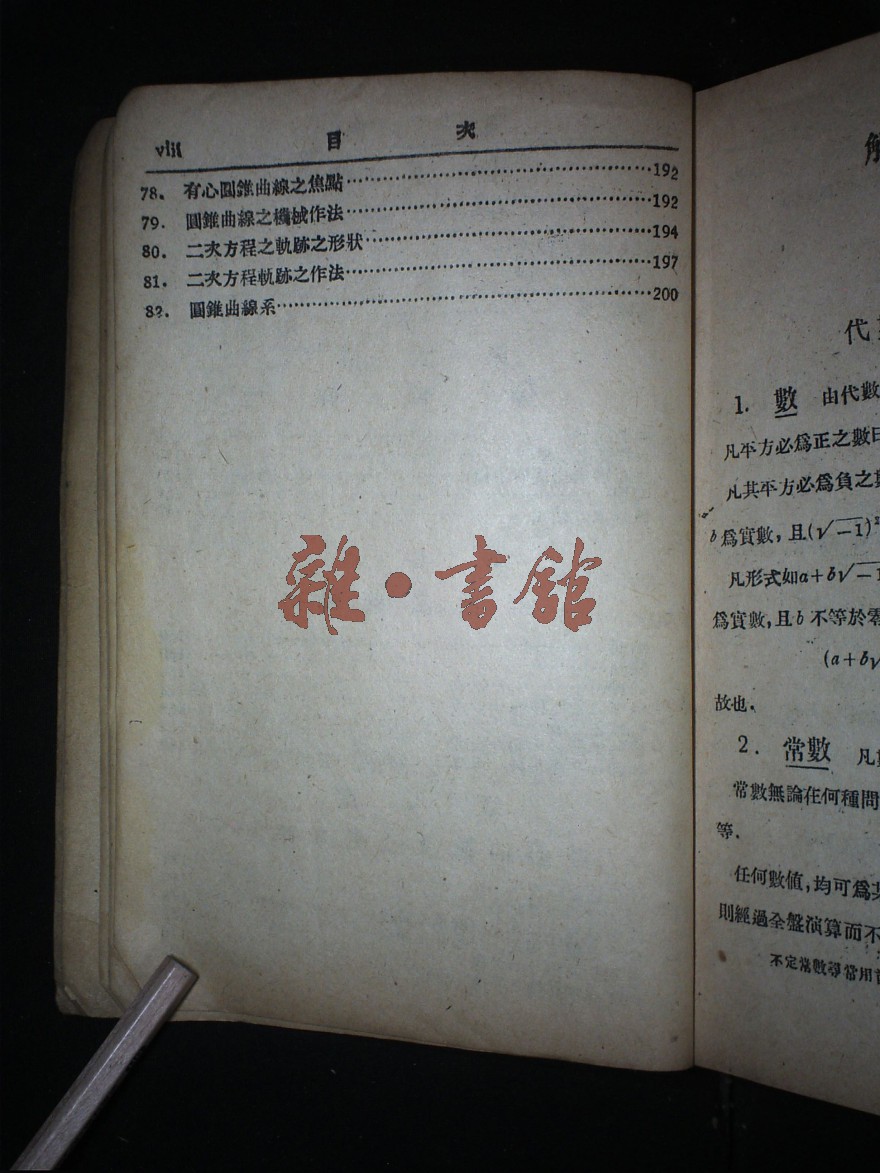 viii 目 次
78. 有心圓錐曲線之焦點……192
79. 圓錐曲線之機械作法……192
80. 二次方程之軌跡之形狀……194
81. 二次方程軌跡之作法……197
82. 圓錐曲線系……200
雜·書館
解
代
1. 數 由代數
凡平方必爲正之數曰
凡其平方必爲負之數
b爲實數,且(√−1)²
凡形式如a+b√−1
爲實數,且b不等於零
(a+b√
故也.
2. 常數 凡
常數無論在何種問
等.
任何數值,均可爲某
則經過全盤演算而不
不定常數尋常用首